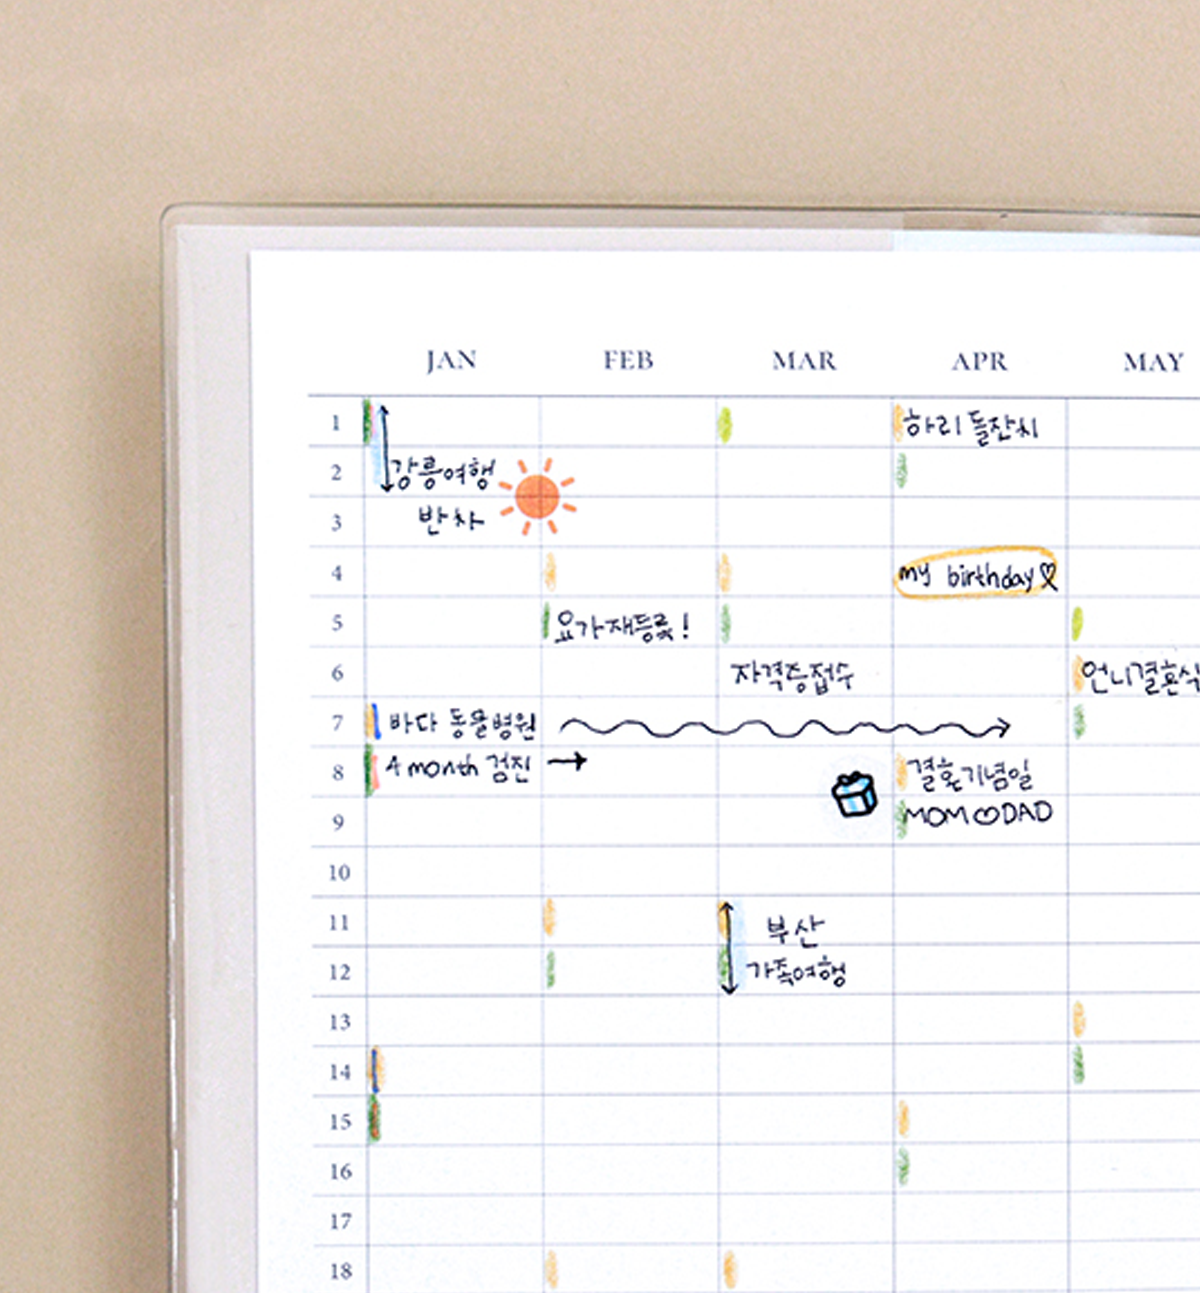 JAN FEB MAR APR MAY
1 하리 돌잔치
2 강릉여행
3 반차
4 my birthday♡
5 요가재등록!
6 자격증접수 언니결혼식
7 바다 동물병원
8 4 month 검진 결혼기념일
9 MOM♡DAD
10
11 부산
12 가족여행
13
14
15
16
17
18